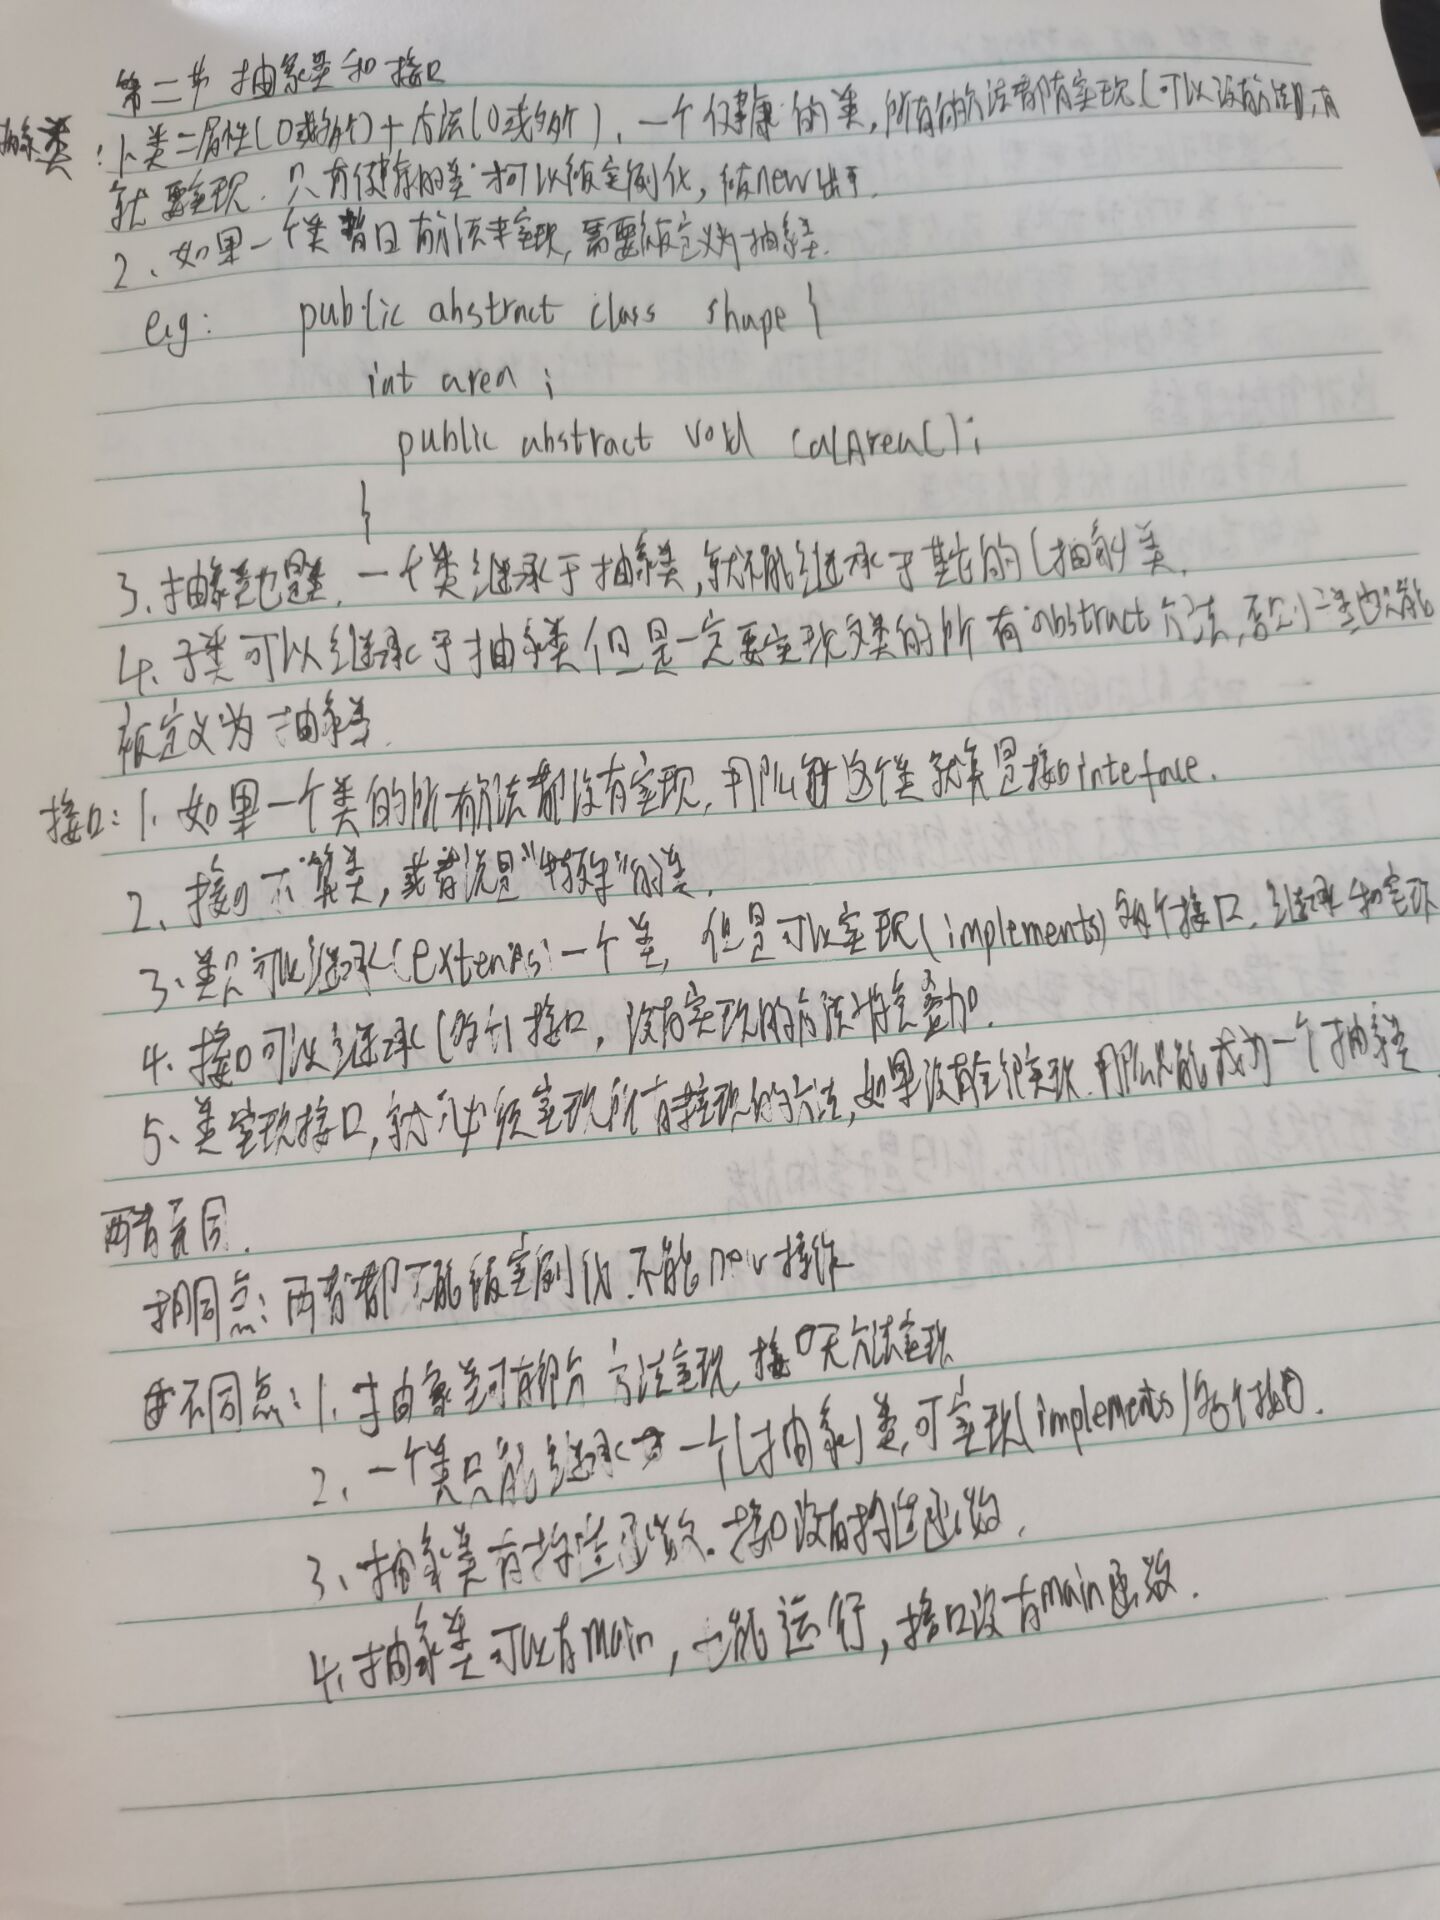 第二节 抽象类和接口
抽象类:1.类=属性(0或多个)+方法(0或多个).一个健康的类,所有的方法都有实现(可以没有方法),有
就要实现.只有健康的类才可以被实例化,被new出来.
2、如果一个类暂且有方法未实现,需要被定义为抽象类.
eg: public abstract class shape {
int area;
public abstract void calArea();
}
3、抽象类也是类,一个类继承于抽象类,就不能继承于其他的(抽象)类.
4、子类可以继承于抽象类,但是一定要实现父类的所有abstract方法,否则子类也只能
被定义为抽象类.
接口:1、如果一个类的所有方法都没有实现,那么这个类就算是接口interface.
2、接口不算类,或者说是"特殊"的类.
3、类只可以继承(extends)一个类,但是可以实现(implements)多个接口,继承和实现
4、接口可以继承(多个)接口,没有实现的方法将会叠加.
5、类实现接口,就必须实现所有未实现的方法,如果没有全部实现.那么只能成为一个抽象类
两者异同.
相同点:两者都不能被实例化.不能new操作
不同点:1、抽象类可有部分方法实现,接口无方法实现
2、一个类只能继承一个(抽象)类,可实现(implements)多个接口.
3、抽象类有构造函数.接口没有构造函数.
4、抽象类可以有main,也能运行,接口没有main函数.